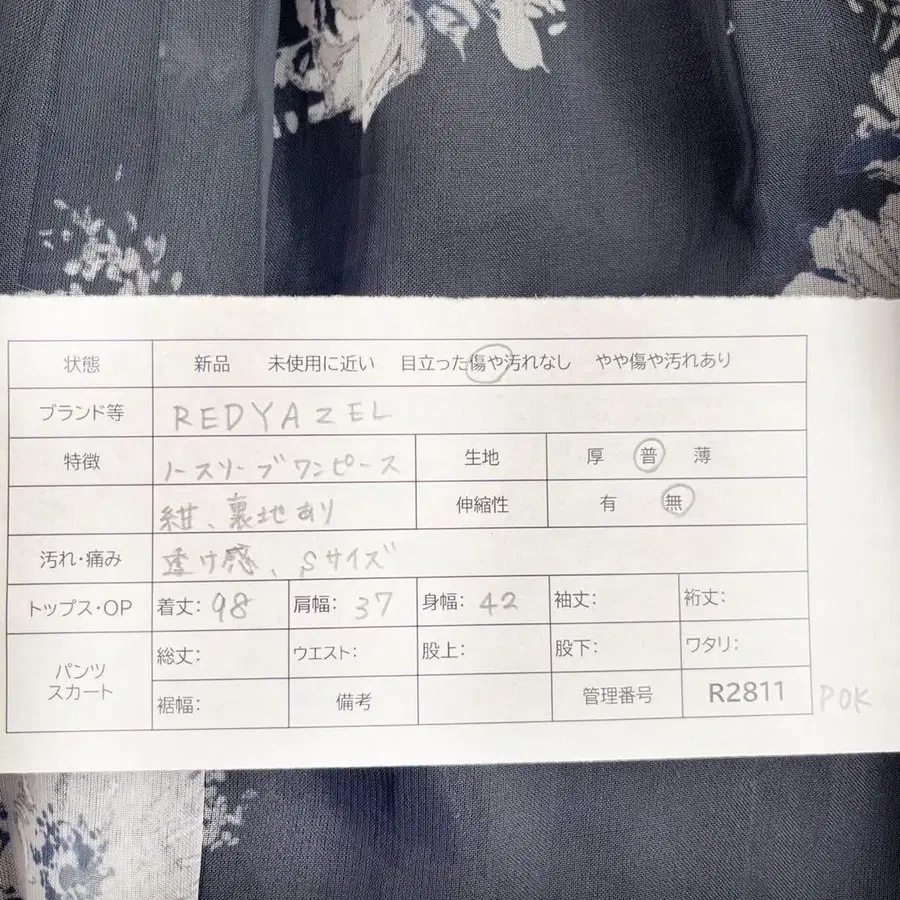 状態 新品 未使用に近い 目立った傷や汚れなし やや傷や汚れあり
ブランド等 REDYAZEL
特徴 ノースリーブワンピース 生地 厚 普 薄
紺、裏地あり 伸縮性 有 無
汚れ・痛み 透け感、Sサイズ
トップス・OP 着丈: 98 肩幅: 37 身幅: 42 袖丈: 裄丈:
パンツ スカート 総丈: ウエスト: 股上: 股下: ワタリ:
裾幅: 備考 管理番号 R2811 POK